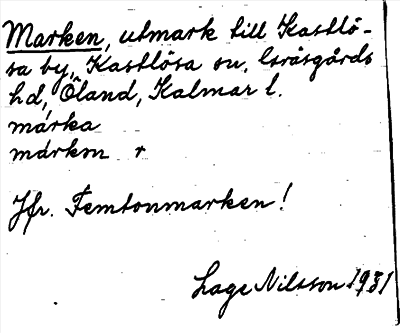 Marken, utmark till Kastlö-
sa by, Kastlösa sn, Gräsgårds
hd, Öland, Kalmar l.
márka
márkɘn r
Jfr. Femtonmarken!
Lage Nilsson 1931